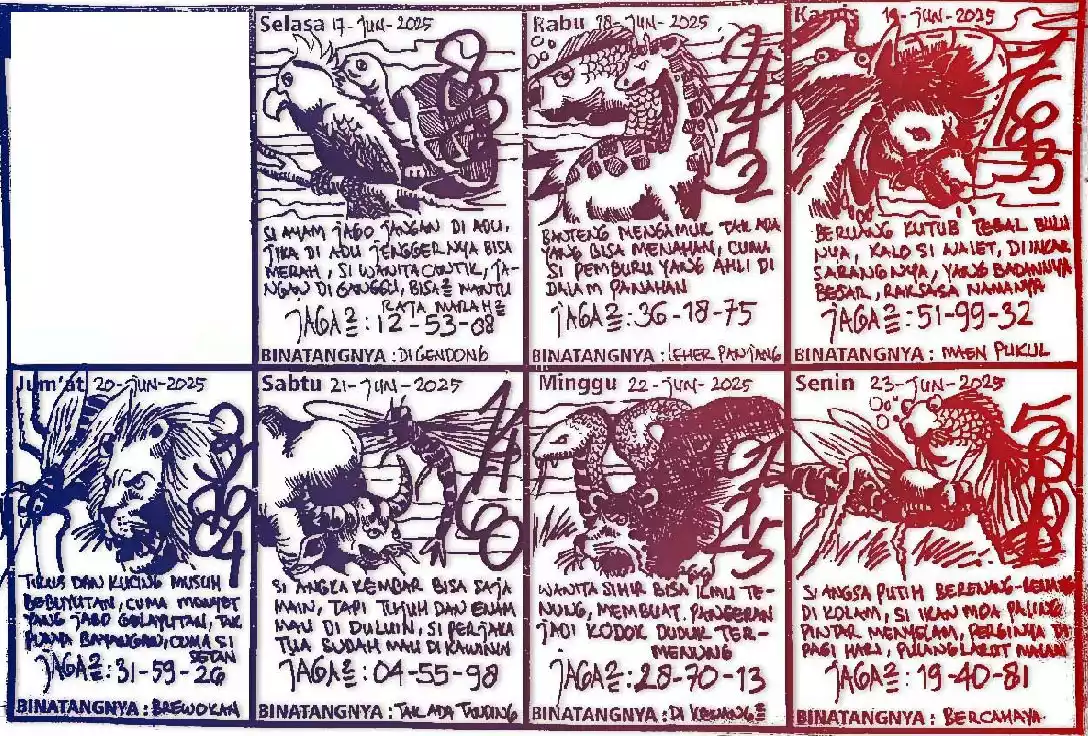 Selasa 17-JUN-2025
SI AYAM JAGO JANGAN DI ADU,
JIKA DI ADU JENGGERNYA BISA
MERAH, SI WANITA CANTIK, JA-
NGAN DI GANGGU, BISA2 MANTU
RATA MARAH2
JAGA2: 12-53-08
BINATANGNYA : DIGENDONG
Rabu 18-JUN-2025
BANTENG MENGAMUK TAK ADA
YANG BISA MENAHAN, CUMA
SI PEMBURU YANG AHLI DI
DALAM PANAHAN
JAGA2: 36-18-75
BINATANGNYA : LEHER PANJANG
Kamis 19-JUN-2025
BERUANG KUTUB TEBAL BULU
NYA, KALO SI WALET, DIINCAR
SARANGNYA, YANG BADANNYA
BESAR, RAKSASA NAMANYA
JAGA2: 51-99-32
BINATANGNYA : MAEN PUKUL
Jum'at 20-JUN-2025
TIKUS DAN KUCING MUSUH
BEBUYUTAN, CUMA MONYET
YANG JAGO GELAYUTAN, TAK
PUNYA BAYANGAN, CUMA SI
SETAN
JAGA2: 31-59-26
BINATANGNYA : BREWOKAN
Sabtu 21-JUN-2025
SI ANGKA KEMBAR BISA SAJA
MAIN, TAPI TUJUH DAN ENAM
MAU DI DULUIN, SI PERJAKA
TUA SUDAH MAU DI KAWININ
JAGA2: 04-55-98
BINATANGNYA : TAK ADA
Minggu 22-JUN-2025
WANITA SIHIR BISA ILMU TE-
NUNG, MEMBUAT PANGERAN
JADI KODOK DUDUK TER-
MENUNG
JAGA2: 28-70-13
BINATANGNYA : DI KEKANG2
Senin 23-JUN-2025
SI ANGSA PUTIH BERENANG-RENANG
DI KOLAM, SI IKAN MOA PALING
PINTAR MENYELAM, PERGINYA DI
PAGI HARI, PULANG LARUT MALAM
JAGA2: 19-40-81
BINATANGNYA : BERCAHAYA